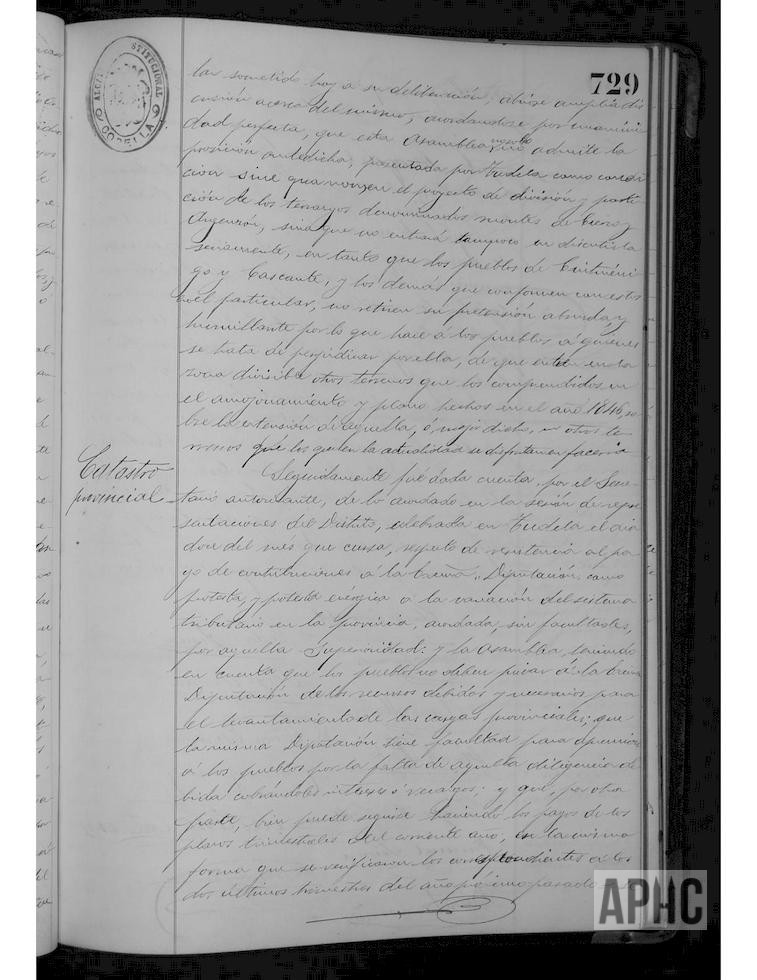 729
ALCALDIA CONSTITUCIONAL
CORELLA
tar sometido hoy a su deliberación, abrese amplia dis
cusión acerca del mismo, acordandose por unanimi
dad perfecta, que esta Asamblea no solo no admite la
proposición antedicha, presentada por Tudela como condi
ción sine qua non en el proyecto de división y parti
ción de los terrenos denominados montes de Cierzo y
Argenzón, sino que no entrará tampoco en discutirla
seriamente, en tanto que los pueblos de Cintruéni
go y Cascante, y los demás que conformen con estos
en el particular, no retiren su pretensión absurda y
humillante por lo que hace á los pueblos á quienes
se trata de perjudicar por ella, de que entren en la
zona divisible otros terrenos que los comprendidos en
el amojonamiento y plano hechos en el año 1846, so
bre la extensión de aquella, ó, mejor dicho, en otros te
rrenos que los que en la actualidad se disfrutan en facería
Catastro
provincial
Seguidamente fué dada cuenta, por el Secre
tario autorizante, de lo acordado en la sesión de repre
sentaciones del Distrito, celebrada en Tudela el dia
doce del més que cursa, respecto de resistencia al pa
go de contribuciones á la Excma. Diputación, como
protesta, y protesta enérgica a la variación del sistema
tributario en la provincia, acordada, sin facultades,
por aquella Superioridad: y la Asamblea teniendo
en cuenta que los pueblos no deben privar á la Excma
Diputación de los recursos debidos y necesarios para
el levantamiento de las cargas provinciales; que
la misma Diputación tiene facultad para apremiar
á los pueblos por la falta de aquella diligencia de
bida cobrándoles intereses ó recargos; y que, por otra
parte, bien puede seguirse haciendo los pagos de los
plazos trimestrales del corriente año, en la misma
forma que se verificaron los correspondientes a los
dos últimos trimestres del año próximo pasado
APHC